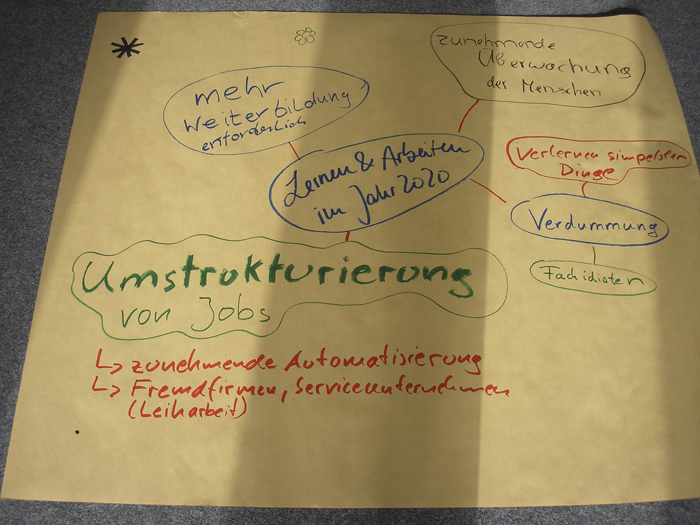 zunehmende
Überwachung
der Menschen
mehr
Weiterbildung
erforderlich
Lernen & Arbeiten
im Jahr 2020
Verlernen simpelster
Dinge
Verdummung
Fachidioten
Umstrukturierung
von Jobs
↳ zunehmende Automatisierung
↳ Fremdfirmen, Serviceunternehmen
(Leiharbeit)